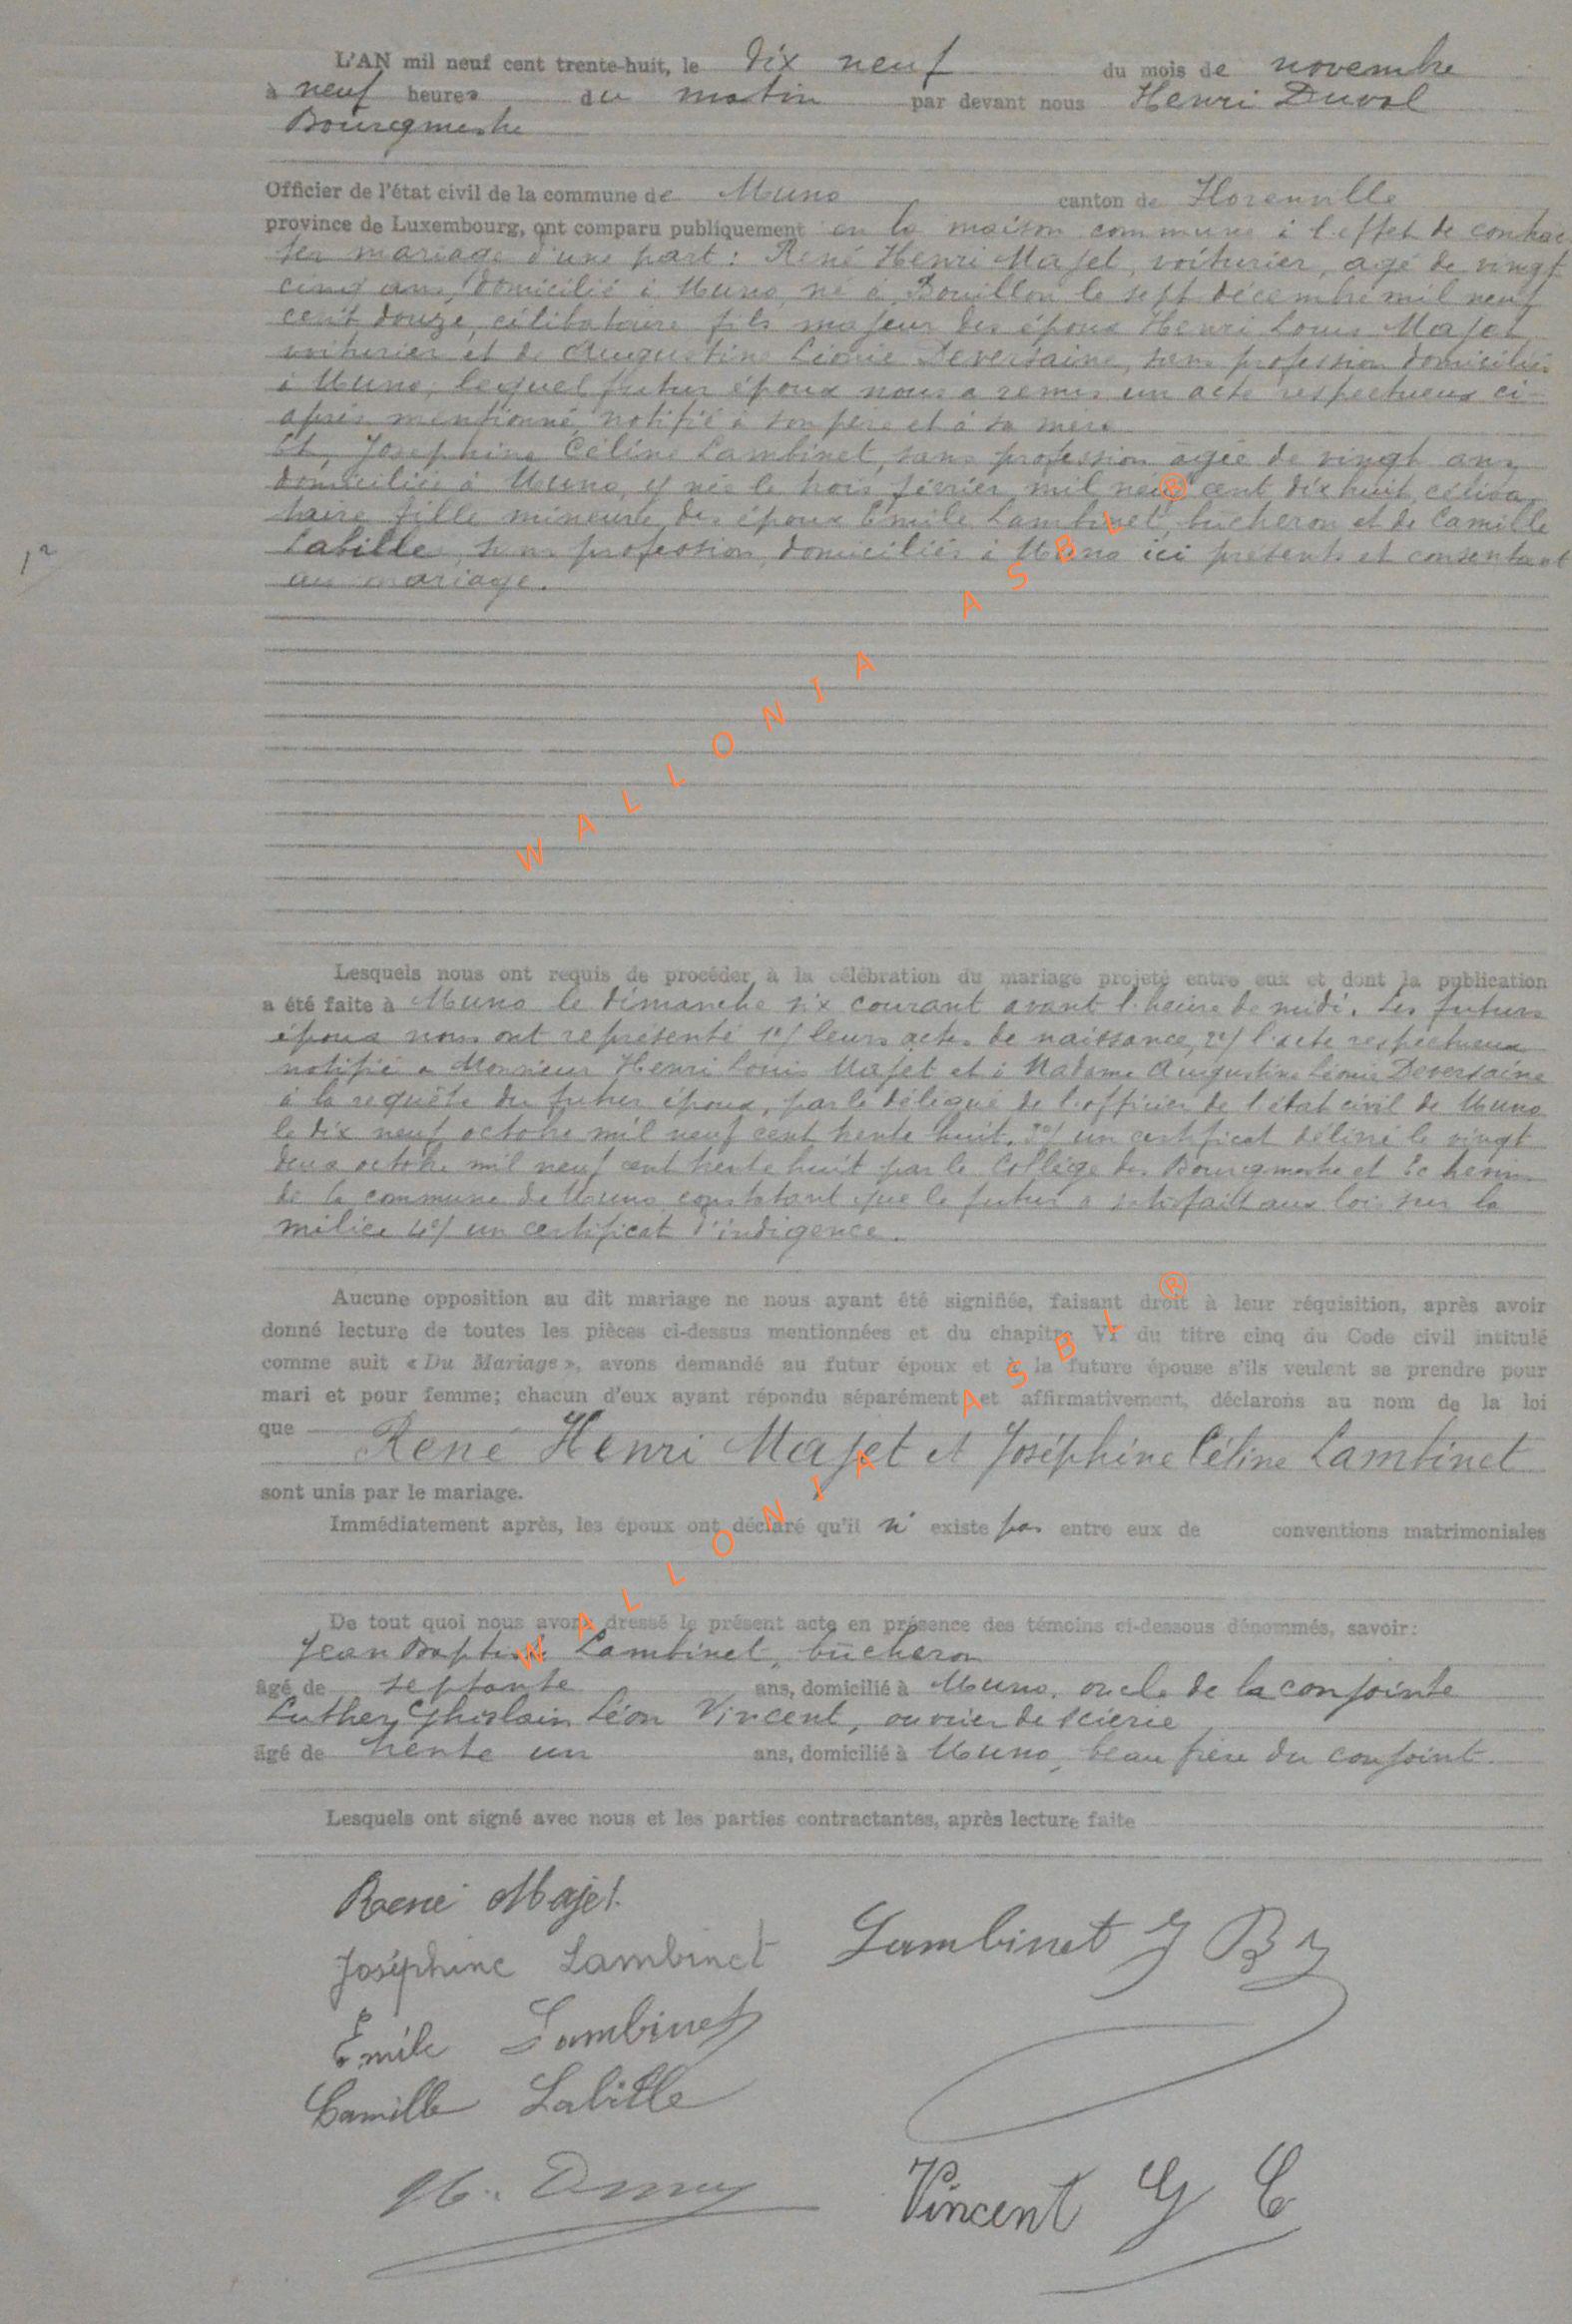 L'AN mil neuf cent trente-huit, le dix neuf du mois de novembre
à neuf heures du matin par devant nous Henri Duval
Bourgmestre
Officier de l'état civil de la commune de Muno canton de Florenville
province de Luxembourg, ont comparu publiquement en la maison commune à l'effet de contrac
ter mariage d'une part : René Henri Majet, voiturier, agé de vingt
cinq ans, domicilié à Muno, né à Bouillon le sept décembre mil neuf
cent douze, célibataire fils majeur des époux Henri Louis Majet
voiturier et de Augustine Léonie Deversaine, sans profession domiciliés
à Muno, lequel futur époux nous a remis un acte respectueux ci-
après mentionné, notifié à son père et à sa mère
Et, Joséphine Céline Lambinet, sans profession agée de vingt ans
domiciliée à Muno, y née le trois février mil neuf cent dix huit, céliba
taire fille mineure des époux Emile Lambinet, bucheron et de Camille
Labille, sans profession, domiciliés à Muno ici présents et consentant
au mariage.
1r
Lesquels nous ont requis de procéder à la célébration du mariage projeté entre eux et dont la publication
a été faite à Muno le dimanche six courant avant l'heure de midi. Les futurs
époux nous ont représenté 1°/ leurs actes de naissance, 2°/ l'acte respectueux
notifié à Monsieur Henri Louis Majet et à Madame Augustine Léonie Deversaine
à la requête du futur époux, par le délégué de l'officier de l'état civil de Muno
le dix neuf octobre mil neuf cent trente huit. 3°/ un certificat délivré le vingt
deux octobre mil neuf cent trente huit par le Collège des Bourgmestre et Echevins
de la commune de Muno constatant que le futur a satisfait aux lois sur la
milice 4°/ un certificat d'indigence.
Aucune opposition au dit mariage ne nous ayant été signifiée, faisant droit à leur réquisition, après avoir
donné lecture de toutes les pièces ci-dessus mentionnées et du chapitre VI du titre cinq du Code civil intitulé
comme suit « Du Mariage », avons demandé au futur époux et à la future épouse s'ils veulent se prendre pour
mari et pour femme; chacun d'eux ayant répondu séparément et affirmativement, déclarons au nom de la loi
que René Henri Majet et Joséphine Céline Lambinet
sont unis par le mariage.
Immédiatement après, les époux ont déclaré qu'il n' existe pas entre eux de conventions matrimoniales
De tout quoi nous avons dressé le présent acte en présence des témoins ci-dessous dénommés, savoir:
Jean Baptiste Lambinet, bûcheron
âgé de septante ans, domicilié à Muno, oncle de la conjointe
Luther Ghislain Léon Vincent, ouvrier de scierie
âgé de trente un ans, domicilié à Muno, beau frère du conjoint.
Lesquels ont signé avec nous et les parties contractantes, après lecture faite
René Majet
Joséphine Lambinet
Lambinet J B
Emile Lambinet
Camille Labille
H. Duval
Vincent G
WALLONIA ASBL ®
WALLONIA ASBL ®